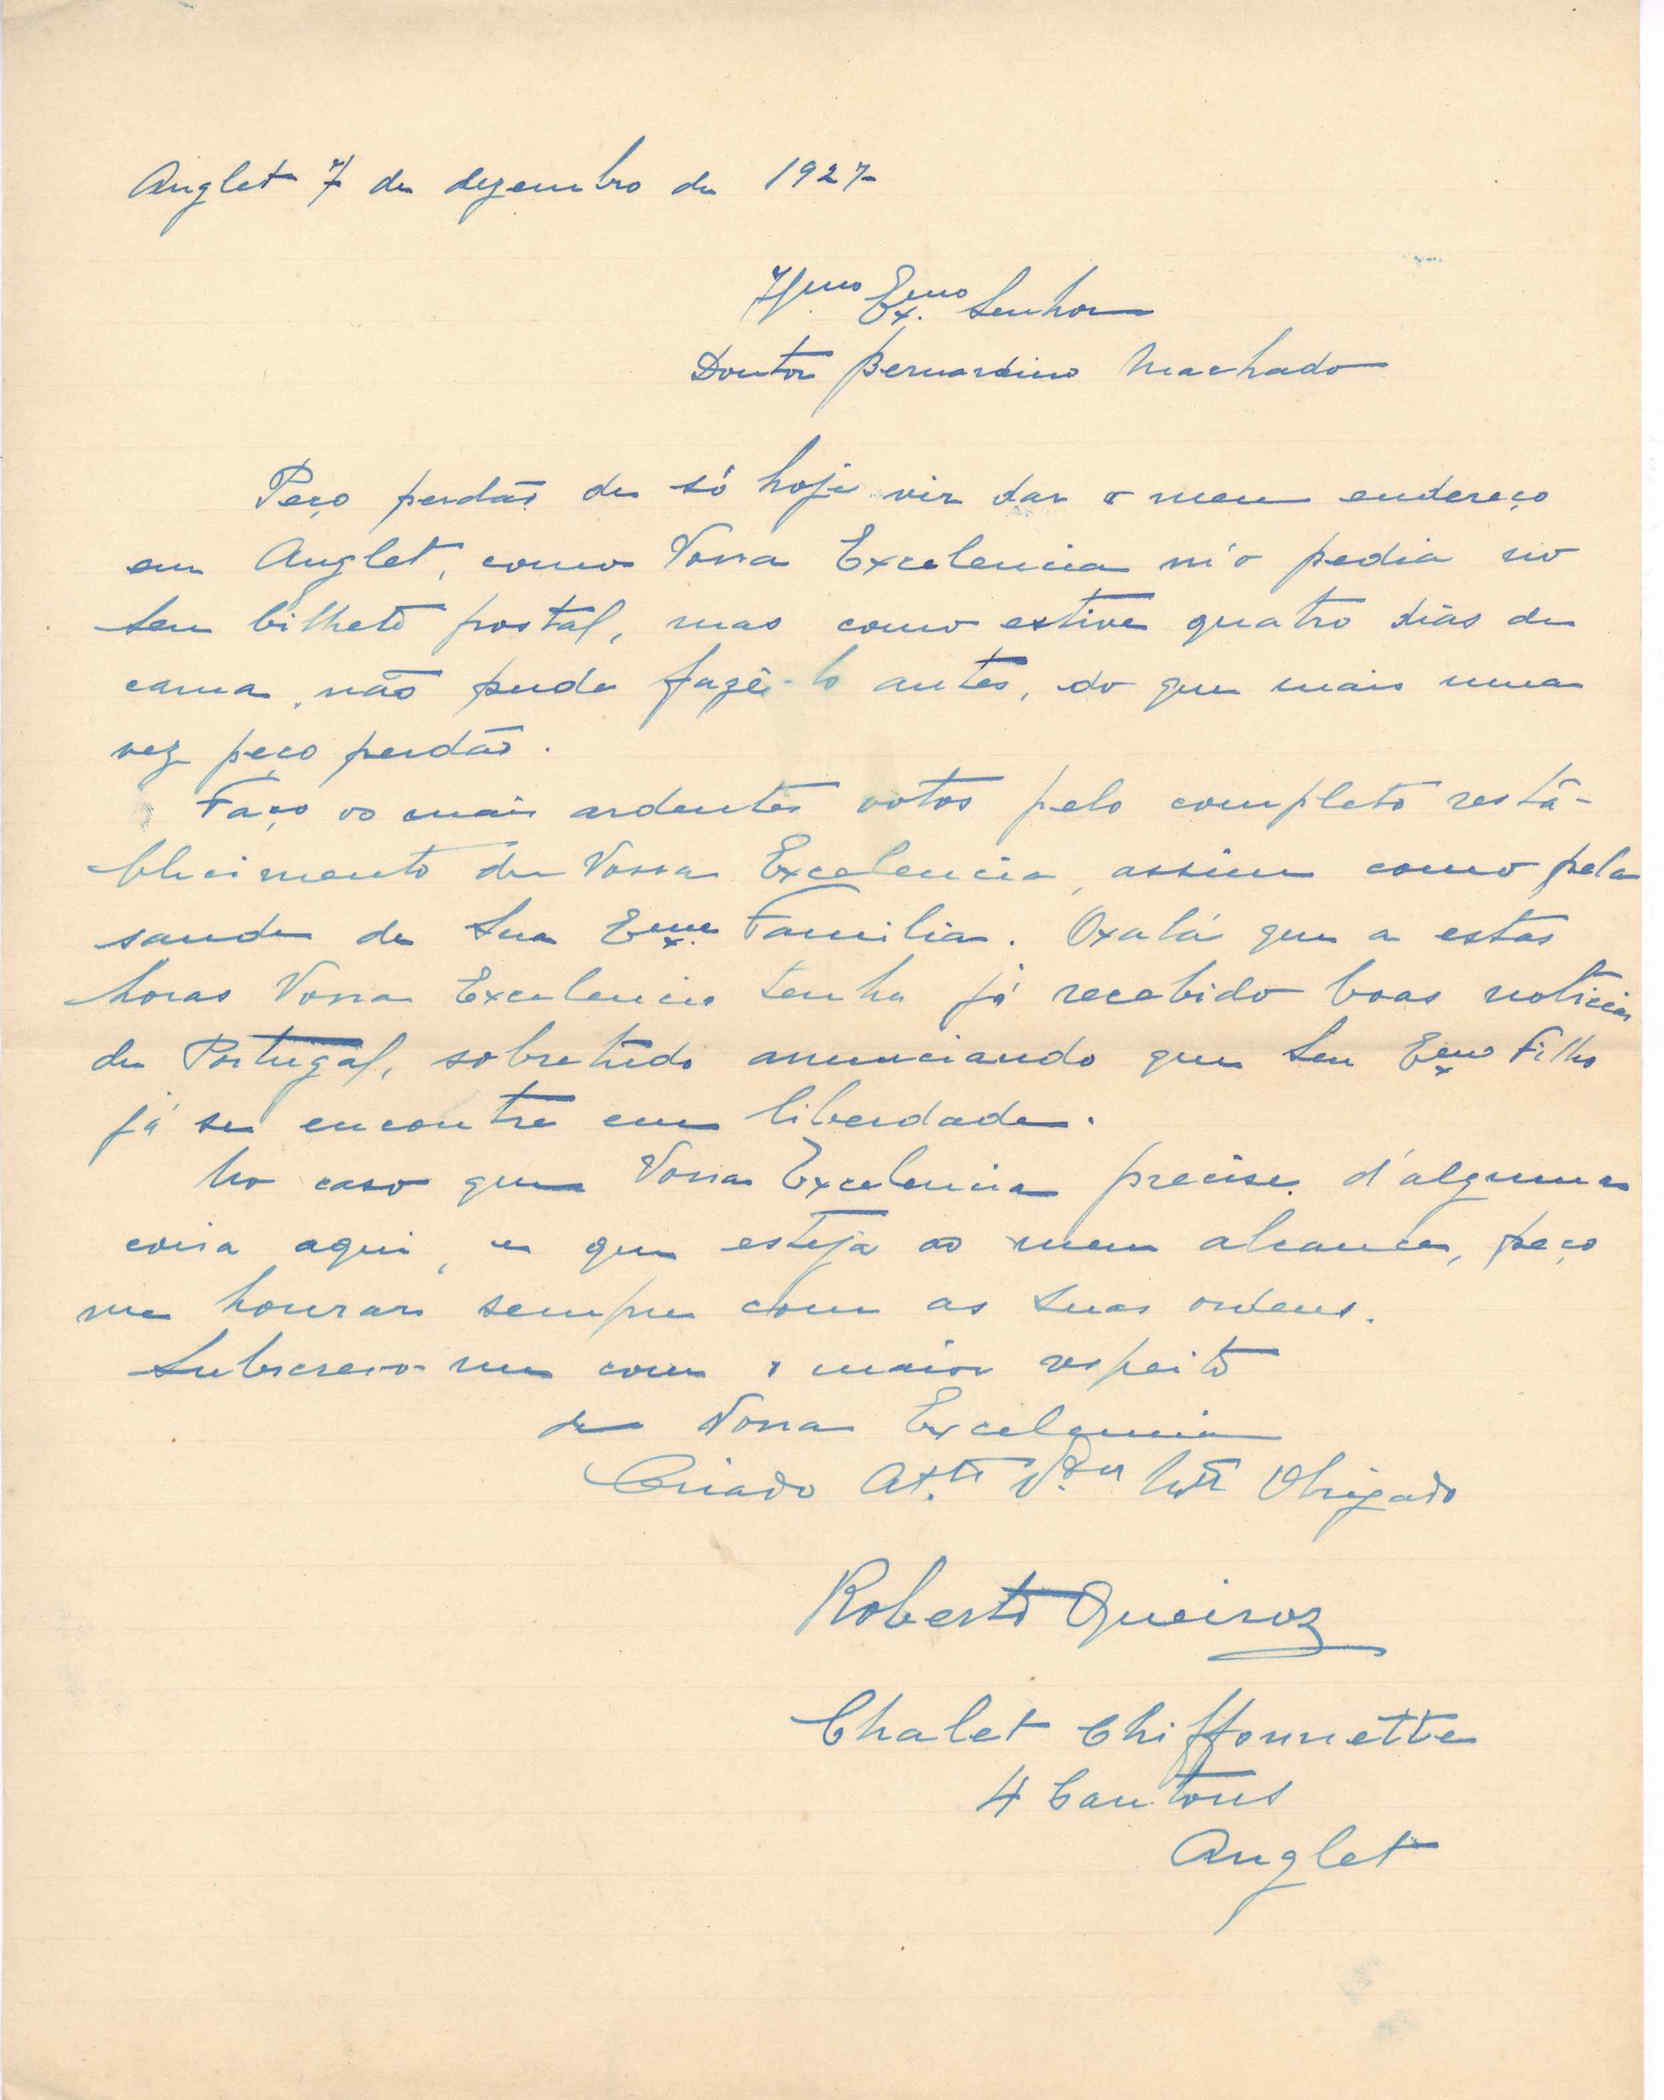 Anglet 7 de dezembro de 1927
Il.mo Ex.mo Senhor
Doutor Bernardino Machado
Peço perdão de só hoje vir dar o meu endereço
em Anglet, como Vossa Excelencia m'o pedia no
seu bilhete postal, mas como estive quatro dias de
cama, não pude fazê-lo antes, do que mais uma
vez peço perdão.
Faço os mais ardentes votos pelo completo resta-
blecimento de Vossa Excelencia, assim como pela
saude de Sua Ex.ma Familia. Oxalá que a estas
horas Vossa Excelencia tenha já recebido boas noticias
de Portugal, sobretudo anunciando que Seu Ex.mo Filho
já se encontre em liberdade.
No caso que Vossa Excelencia precise d'alguma
coisa aqui, e que esteja ao meu alcance, peço
me honrar sempre com as suas ordens.
Subscrevo-me com o maior respeito
de Vossa Excelencia
Criado At.te V.dor M.to Obrigado
Roberto Queiroz
Chalet Chiffonnette
4 Cantons
Anglet